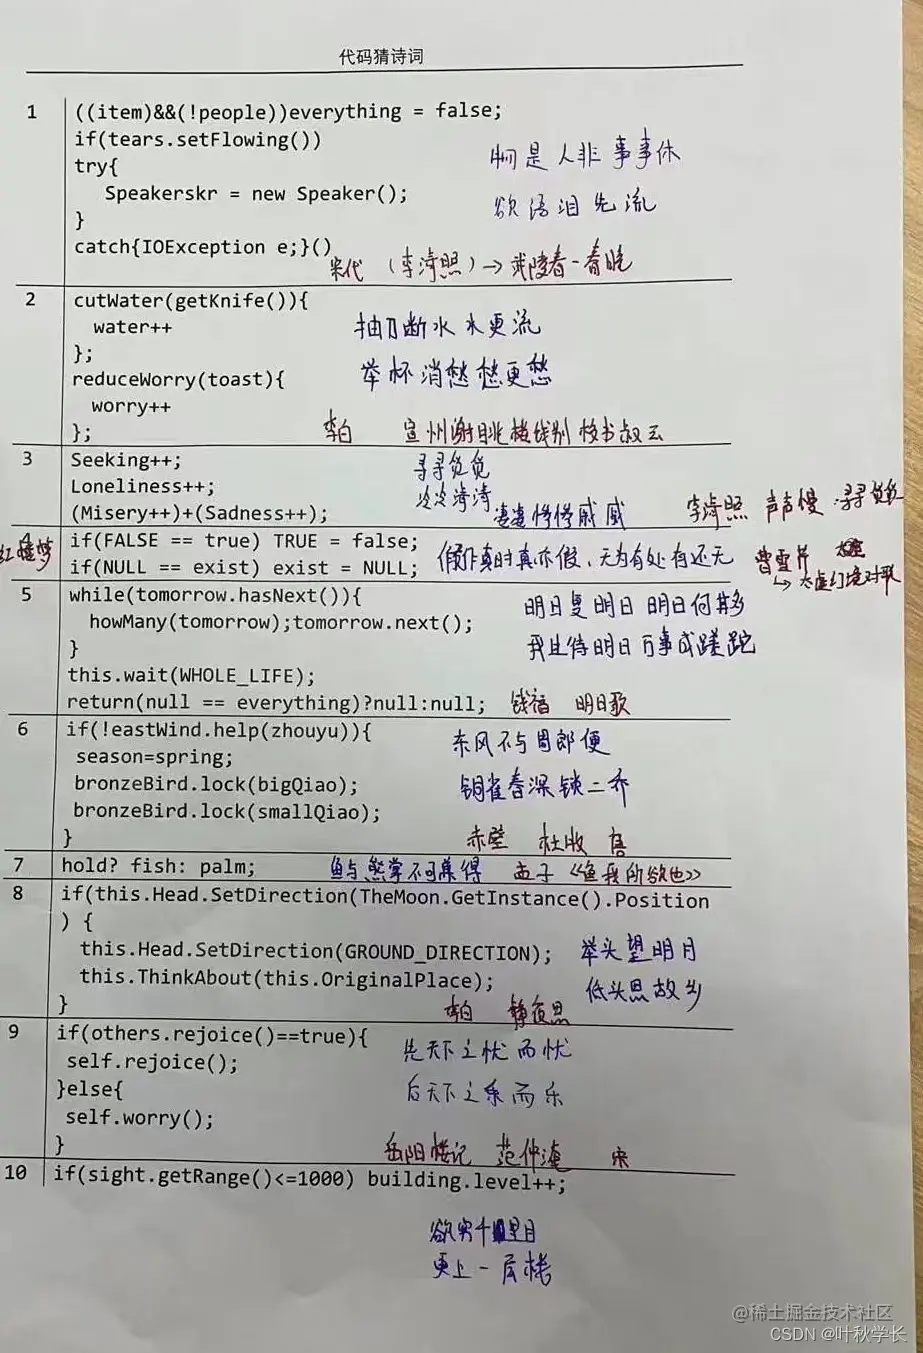 代码猜诗词
1 ((item)&&(!people))everything = false;
if(tears.setFlowing())
try{
Speakerskr = new Speaker();
}
catch{IOException e;}()
物是人非事事休
欲语泪先流
宋代 (李清照)→武陵春-春晚
2 cutWater(getKnife()){
water++
};
reduceWorry(toast){
worry++
};
抽刀断水水更流
举杯消愁愁更愁
李白 宣州谢朓楼饯别校书叔云
3 Seeking++;
Loneliness++;
(Misery++)+(Sadness++);
寻寻觅觅
冷冷清清
凄凄惨惨戚戚
李清照 声声慢·寻寻觅觅
红楼梦
if(FALSE == true) TRUE = false;
if(NULL == exist) exist = NULL;
假作真时真亦假、无为有处有还无
曹雪芹
→太虚幻境对联
5 while(tomorrow.hasNext()){
howMany(tomorrow);tomorrow.next();
}
this.wait(WHOLE_LIFE);
return(null == everything)?null:null;
明日复明日 明日何其多
我生待明日 万事成蹉跎
钱福 明日歌
6 if(!eastWind.help(zhouyu)){
season=spring;
bronzeBird.lock(bigQiao);
bronzeBird.lock(smallQiao);
}
东风不与周郎便
铜雀春深锁二乔
赤壁 杜牧 唐
7 hold? fish: palm;
鱼与熊掌不可兼得 孟子《鱼我所欲也》
8 if(this.Head.SetDirection(TheMoon.GetInstance().Position
) {
this.Head.SetDirection(GROUND_DIRECTION);
this.ThinkAbout(this.OriginalPlace);
}
举头望明月
低头思故乡
李白 静夜思
9 if(others.rejoice()==true){
self.rejoice();
}else{
self.worry();
}
先天下之忧而忧
后天下之乐而乐
岳阳楼记 范仲淹 宋
10 if(sight.getRange()<=1000) building.level++;
欲穷千里目
更上一层楼
@稀土掘金技术社区
CSDN @叶秋学长